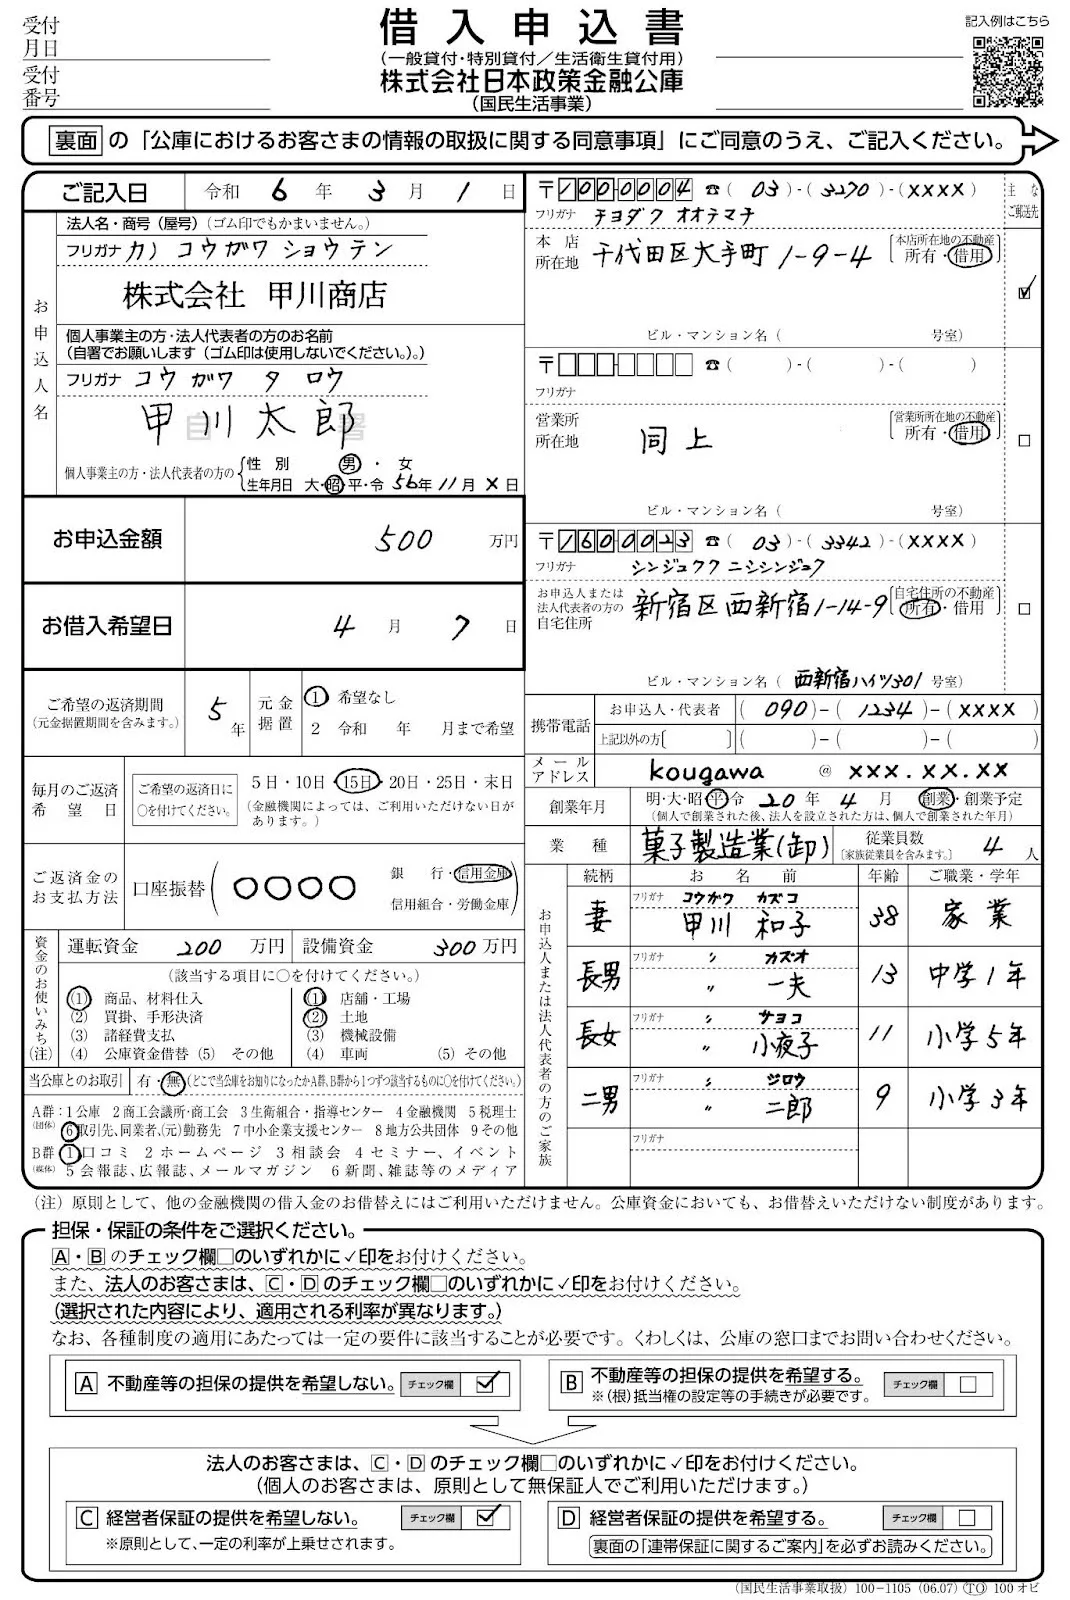 受付
月日
受付
番号
借入申込書
(一般貸付・特別貸付/生活衛生貸付用)
株式会社日本政策金融公庫
(国民生活事業)
記入例はこちら
裏面 の「公庫におけるお客さまの情報の取扱に関する同意事項」にご同意のうえ、ご記入ください。
ご記入日 令和 6 年 3 月 1 日
お申込人名
法人名・商号(屋号)(ゴム印でもかまいません。)
フリガナ カ)コウガワ ショウテン
株式会社 甲川商店
個人事業主の方・法人代表者の方のお名前
(自署でお願いします(ゴム印は使用しないでください。)。)
フリガナ コウ ガワ タ ロウ
自署
甲川太郎
個人事業主の方・法人代表者の方の
性別 男・女
生年月日 大・昭・平・令 56年 11月 X日
お申込金額 500 万円
お借入希望日 4 月 7 日
ご希望の返済期間
(元金据置期間を含みます。)
5 年
元金据置
1 希望なし
2 令和 年 月まで希望
毎月のご返済希望日
ご希望の返済日に○を付けてください。
5日・10日・15日・20日・25日・末日
(金融機関によっては、ご利用いただけない日があります。)
ご返済金のお支払方法
口座振替
○○○○
銀行・信用金庫
信用組合・労働金庫
資金のお使いみち(注)
運転資金 200 万円 設備資金 300 万円
(該当する項目に○を付けてください。)
(1) 商品、材料仕入 (1) 店舗・工場
(2) 買掛、手形決済 (2) 土地
(3) 諸経費支払 (3) 機械設備
(4) 公庫資金借替 (5) その他 (4) 車両 (5) その他
当公庫とのお取引 有・無 (どこで当公庫をお知りになったかA群、B群から1つずつ該当するものに○を付けてください。)
A群:1 公庫 2 商工会議所・商工会 3 生衛組合・指導センター 4 金融機関 5 税理士
(団体) 6 取引先、同業者、(元)勤務先 7 中小企業支援センター 8 地方公共団体 9 その他
B群:1 口コミ 2 ホームページ 3 相談会 4 セミナー、イベント
(媒体) 5 会報誌、広報誌、メールマガジン 6 新聞、雑誌等のメディア
〒100-0004 ☎(03)-(3270)-(XXXX)
主なご郵送先
フリガナ チヨダク オオテマチ
本店所在地
千代田区大手町1-9-4
本店所在地の不動産
所有・借用
ビル・マンション名( 号室)
〒 ☎( )-( )-( )
フリガナ
営業所所在地
同上
営業所所在地の不動産
所有・借用
ビル・マンション名( 号室)
〒160-0023 ☎(03)-(3342)-(XXXX)
フリガナ シンジュクク ニシシンジュク
お申込人または法人代表者の方の自宅住所
新宿区西新宿1-14-9
自宅住所の不動産
所有・借用
ビル・マンション名(西新宿ハイツ301 号室)
携帯電話
お申込人・代表者 (090)-(1234)-(XXXX)
上記以外の方[ ] ( )-( )-( )
メールアドレス
kougawa @ xxx.xx.xx
創業年月
明・大・昭・平・令 20 年 4 月 創業・創業予定
(個人で創業された後、法人を設立された方は、個人で創業された年月)
業種 菓子製造業(卸)
従業員数 4 人
[家族従業員を含みます。]
お申込人または法人代表者の方のご家族
続柄 お名前 年齢 ご職業・学年
フリガナ コウカワ カズコ
妻 甲川 和子 38 家業
フリガナ 〃 カズオ
長男 〃 一夫 13 中学1年
フリガナ 〃 サヨコ
長女 〃 小夜子 11 小学5年
フリガナ 〃 ジロウ
二男 〃 二郎 9 小学3年
フリガナ
(注)原則として、他の金融機関の借入金のお借替えにはご利用いただけません。公庫資金においても、お借替えいただけない制度があります。
担保・保証の条件をご選択ください。
A・Bのチェック欄□のいずれかに✓印をお付けください。
また、法人のお客さまは、C・Dのチェック欄□のいずれかに✓印をお付けください。
(選択された内容により、適用される利率が異なります。)
なお、各種制度の適用にあたっては一定の要件に該当することが必要です。くわしくは、公庫の窓口までお問い合わせください。
A 不動産等の担保の提供を希望しない。 チェック欄 ✓
B 不動産等の担保の提供を希望する。 チェック欄 □
※(根)抵当権の設定等の手続きが必要です。
法人のお客さまは、C・Dのチェック欄□のいずれかに✓印をお付けください。
(個人のお客さまは、原則として無保証人でご利用いただけます。)
C 経営者保証の提供を希望しない。 チェック欄 ✓
※原則として、一定の利率が上乗せされます。
D 経営者保証の提供を希望する。 チェック欄 □
裏面の「連帯保証に関するご案内」を必ずお読みください。
(国民生活事業取扱) 100-1105 (06.07) TO 100 オビ